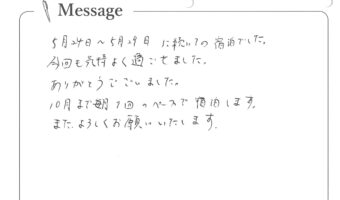 Message
5月24日～5月29日 に続いての宿泊でした。
今回も気持よく過ごせました。
ありがとうございました。
10月まで毎月1回のペースで宿泊します。
また、よろしくお願いいたします。